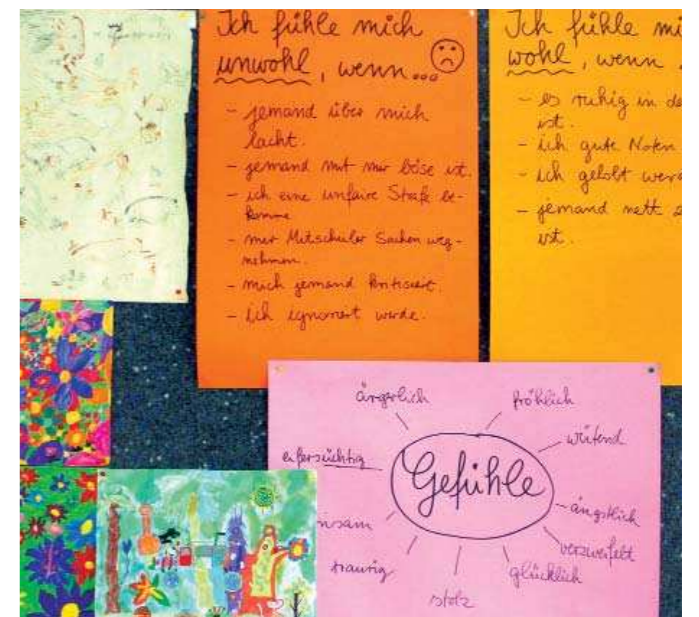 Ich fühle mich
unwohl, wenn...
- jemand über mich
lacht.
- jemand mit mir böse ist.
- ich eine unfaire Strafe be-
komme
- mir Mitschüler Sachen weg-
nehmen.
- mich jemand kritisiert.
- ich ignoriert werde.
Ich fühle mi
wohl, wenn
- es ruhig in de
ist.
- ich gute Noten
- ich gelobt werd
- jemand nett z
ist.
ärgerlich
fröhlich
wütend
eifersüchtig
Gefühle
ängstlich
nsam
verzweifelt
traurig
glücklich
stolz